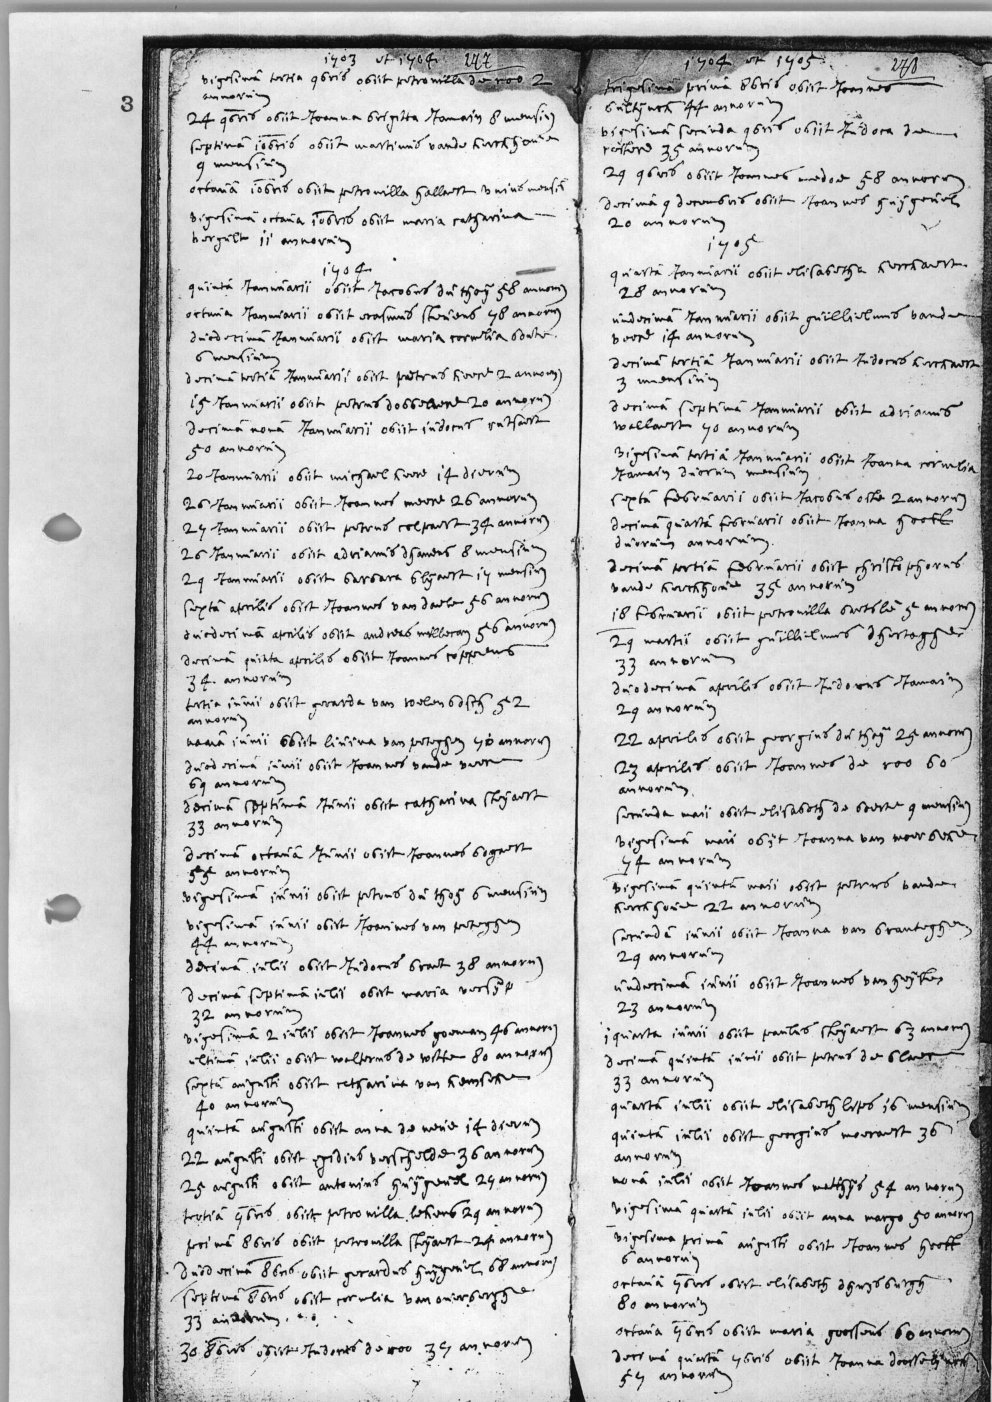 3
1703 et 1704 247
vigesimâ tertia 9bris obiit petronilla de roo 2
annorum
24 9bris obiit Joanna brigitta Jamain 8 mensium
septimâ 10bris obiit martinus vande kerckhove
9 mensium
octauâ 10bris obiit petronilla hallaert unius mensis
vigesimâ octaua 10bris obiit maria catharina
vergult 11 annorum
1704
quintâ Januuarii obiit Jacobus du thoij 58 annorum
octaua Januarii obiit erasmus steuens 78 annorum
duodecimâ Januarii obiit maria cornelia
6 mensium
decimâ tertiâ Januarii obiit petrus heere 2 annorum
15 Januarii obiit petrus dobbelaere 20 annorum
decimâ nonâ Januarii obiit iudocus
50 annorum
20 Januarii obiit michael heere 14 dierum
26 Januarii obiit Joannes meere 26 annorum
27 Januarii obiit petrus colpaert 34 annorum
26 Januarii obiit adrianus dhaens 8 mensium
29 Januarii obiit barbara blijaert 17 mensium
sextâ aprilis obiit Joannes van daele 56 annorum
duodecimâ aprilis obiit andreas 56 annorum
decimâ quinta aprilis obiit Joannes coppens
34 annorum
tertia iunii obiit gerarda van 52
annorum
nonâ iunii obiit liuina van peteghem 70 annorum
duodecimâ iunii obiit Joannes vande veere
69 annorum
decimâ septimâ Junii obiit catharina steijaert
33 annorum
decimâ octauâ Junii obiit Joannes bogaert
55 annorum
vigesimâ iunii obiit petrus du thoij 6 mensium
vigesimâ iunii obiit Joannes van peteghem
44 annorum
decimâ iulii obiit Judocus braet 38 annorum
decimâ septimâ iulii obiit maria
32 annorum
vigesimâ 2 iulii obiit Joannes goeman 46 annorum
ultimâ iulii obiit walterus de witte 80 annorum
sextâ augusti obiit catharina van hemseke
40 annorum
quintâ augusti obiit anna de neue 14 dierum
22 augusti obiit egidius verschelde 36 annorum
25 augusti obiit antonius huijgeuel 27 annorum
tertiâ 7bris obiit petronilla lekens 29 annorum
primâ 8bris obiit petronilla steijaert 24 annorum
duodecimâ 8bris obiit gerardus huijgeuel 68 annorum
septimâ 8bris obiit cornelia van ouerberghe
33 annorum
30 8bris obiit Judocus de roo 37 annorum
1704 et 1705 248
trigesimâ primâ 8bris obiit Joannes
44 annorum
vigesimâ secunda 9bris obiit Judoca de
costere 35 annorum
29 9bris obiit Joannes 58 annorum
decimâ 9 decembris obiit Joannes huijgeuel
20 annorum
1705
quartâ Januarii obiit elisabetha kerckaert
28 annorum
undecimâ Januarii obiit guillielmus vande
veere 14 annorum
decimâ tertiâ Januarii obiit Judocus kerckaert
3 mensium
decimâ septimâ Januarii obiit adrianus
wallaert 70 annorum
vigesimâ tertiâ Januarii obiit Joanna cornelia
Jamain duorum mensium
sextâ februarii obiit Jacobus oste 2 annorum
decimâ quartâ februarii obiit Joanna
duorum annorum
decimâ tertiâ februarii obiit christophorus
vande kerckhoue 35 annorum
18 februarii obiit petronilla 5 annorum
29 martii obiit guillielmus dhertogghe
33 annorum
duodecimâ aprilis obiit Judocus Jamain
29 annorum
22 aprilis obiit georgius du thoij 25 annorum
23 aprilis obiit Joannes de roo 60
annorum
secunda maii obiit elisabeth de 9 mensium
vigesimâ maii obijt Joanna van moerbeke
74 annorum
vigesimâ quintâ maii obiit petrus vande
kerckhoue 22 annorum
secundâ iunii obiit Joanna van branteghem
29 annorum
undecimâ iunii obiit Joannes van
23 annorum
quarta iunii obiit paulus steijaert 63 annorum
decimâ quintâ iunii obiit petrus de
33 annorum
quartâ iulii obiit elisabeth 16 mensium
quintâ iulii obiit georgius moeraert 36
annorum
nonâ iulii obiit Joannes matthijs 54 annorum
vigesimâ quartâ iulii obiit anna margo 50 annorum
vigesima primâ augusti obiit Joannes
6 annorum
octauâ 7bris obiit elisabeth
80 annorum
octaua 7bris obiit maria goossens 60 annorum
decimâ quartâ 7bris obiit Joanna
57 annorum